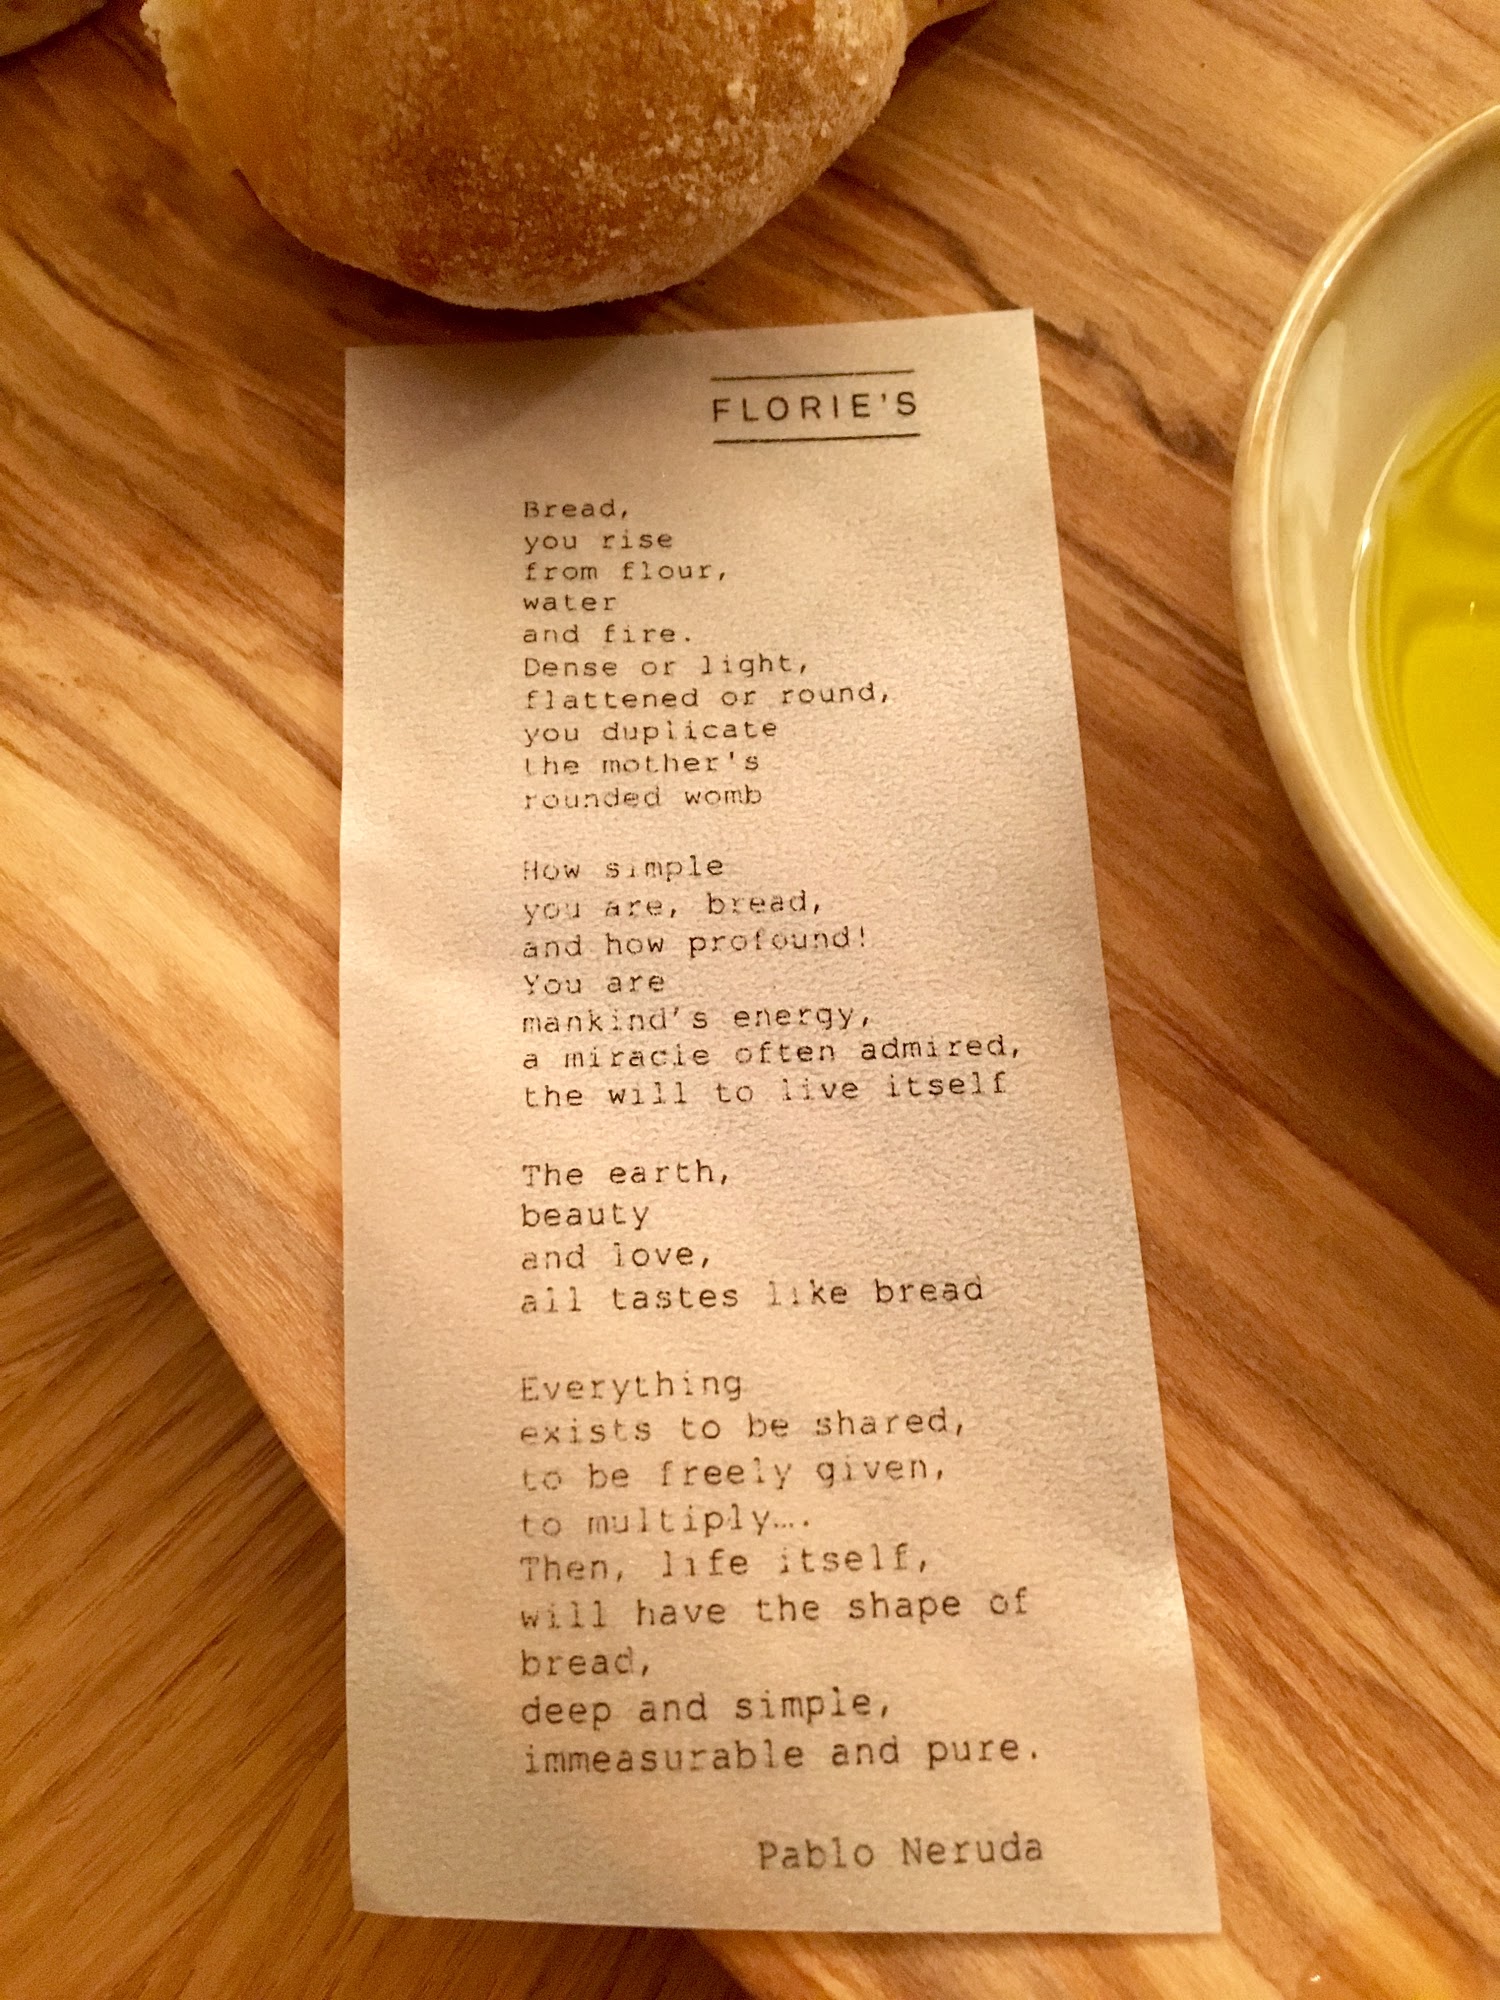 FLORIE'S
Bread,
you rise
from flour,
water
and fire.
Dense or light,
flattened or round,
you duplicate
the mother's
rounded womb
How simple
you are, bread,
and how profound!
You are
mankind's energy,
a miracle often admired,
the will to live itself
The earth,
beauty
and love,
all tastes like bread
Everything
exists to be shared,
to be freely given,
to multiply….
Then, life itself,
will have the shape of
bread,
deep and simple,
immeasurable and pure.
Pablo Neruda